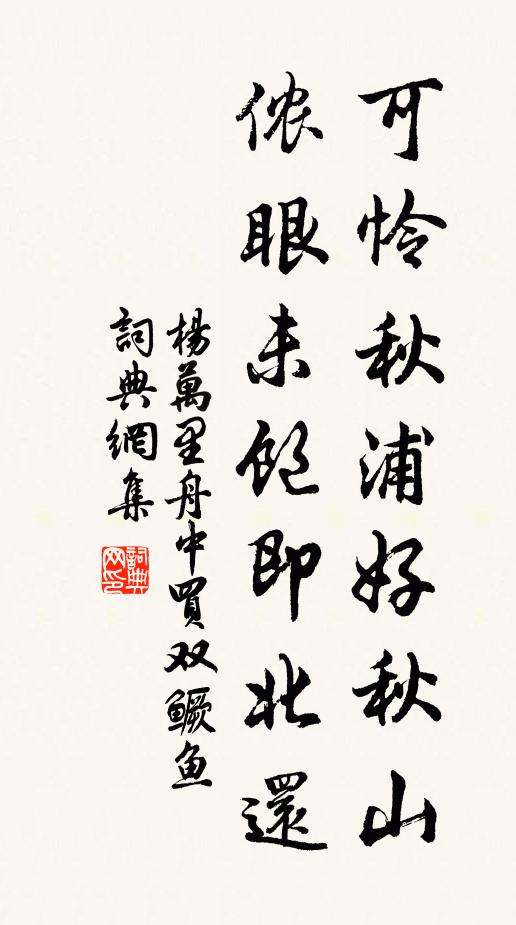 可怜秋浦好秋山
侬眼未饱即北還
楊萬里舟中買双鳜魚
詞典網集
詞典网印